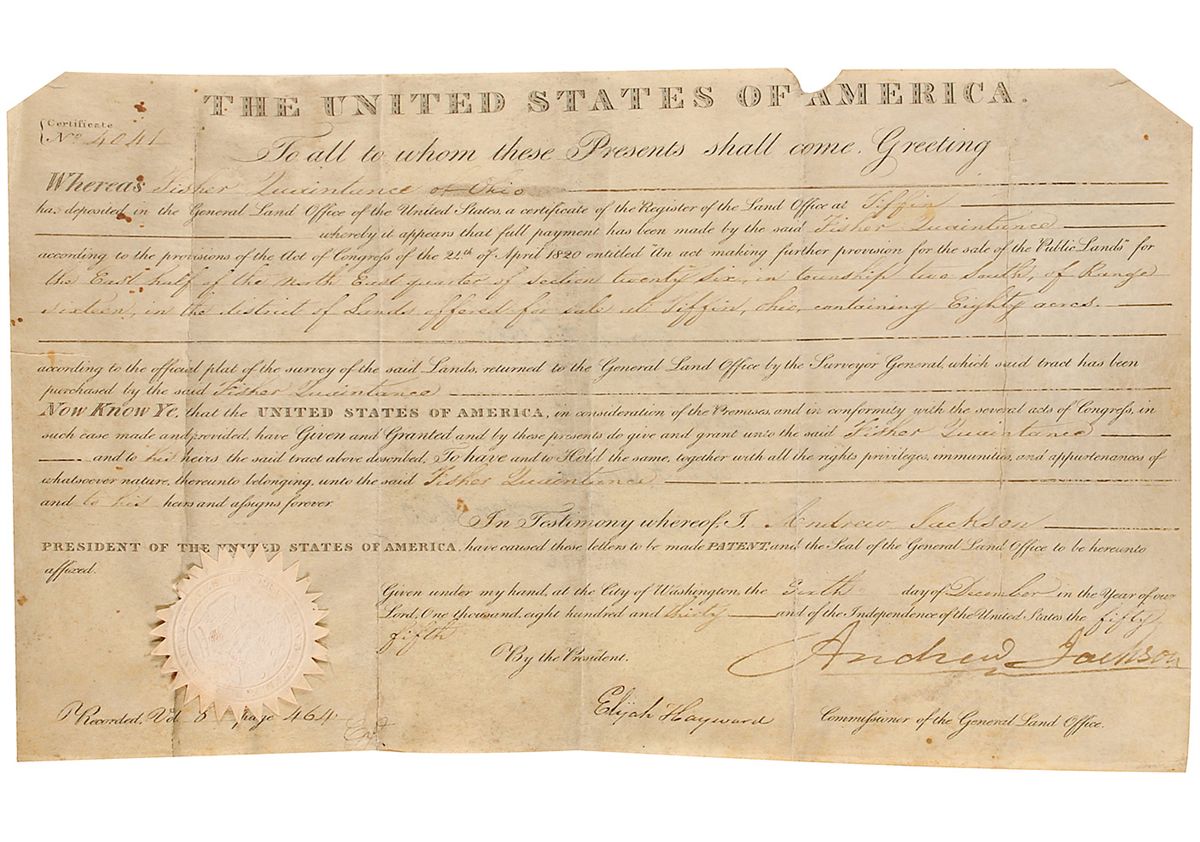 THE UNITED STATES OF AMERICA.
Certificate
No. 4041
To all to whom these Presents shall come, Greeting
Whereas Fisher Quaintance of Ohio
has deposited in the General Land Office of the United States, a certificate of the Register of the Land Office at Tiffin
whereby it appears that full payment has been made by the said Fisher Quaintance
according to the provisions of the Act of Congress of the 24th of April 1820 entitled "An act making further provision for the sale of the Public Lands" for
the East half of the North East quarter of section twenty six, in township two South, of Range
sixteen, in the district of Lands offered for sale at Tiffin, Ohio, containing Eighty acres.
according to the official plat of the survey of the said Lands, returned to the General Land Office by the Surveyor General, which said tract has been
purchased by the said Fisher Quaintance
Now Know Ye, that the UNITED STATES OF AMERICA, in consideration of the Premises, and in conformity with the several acts of Congress, in
such case made and provided, have Given and Granted and by these presents do give and grant unto the said Fisher Quaintance
and to his heirs the said tract above described, To have and to Hold the same, together with all the rights privileges, immunities, and appurtenances of
whatsoever nature, thereunto belonging, unto the said Fisher Quaintance
and to his heirs and assigns forever
In Testimony whereof, I, Andrew Jackson
PRESIDENT OF THE UNITED STATES OF AMERICA, have caused these letters to be made PATENT, and the Seal of the General Land Office to be hereunto
affixed.
Given under my hand, at the City of Washington, the Sixth day of December in the Year of our
Lord, One thousand, eight hundred and thirty and of the Independence of the United States the fifty
fifth
Andrew Jackson
By the President.
Elijah Hayward Commissioner of the General Land Office.
Recorded, Vol 8 page 464